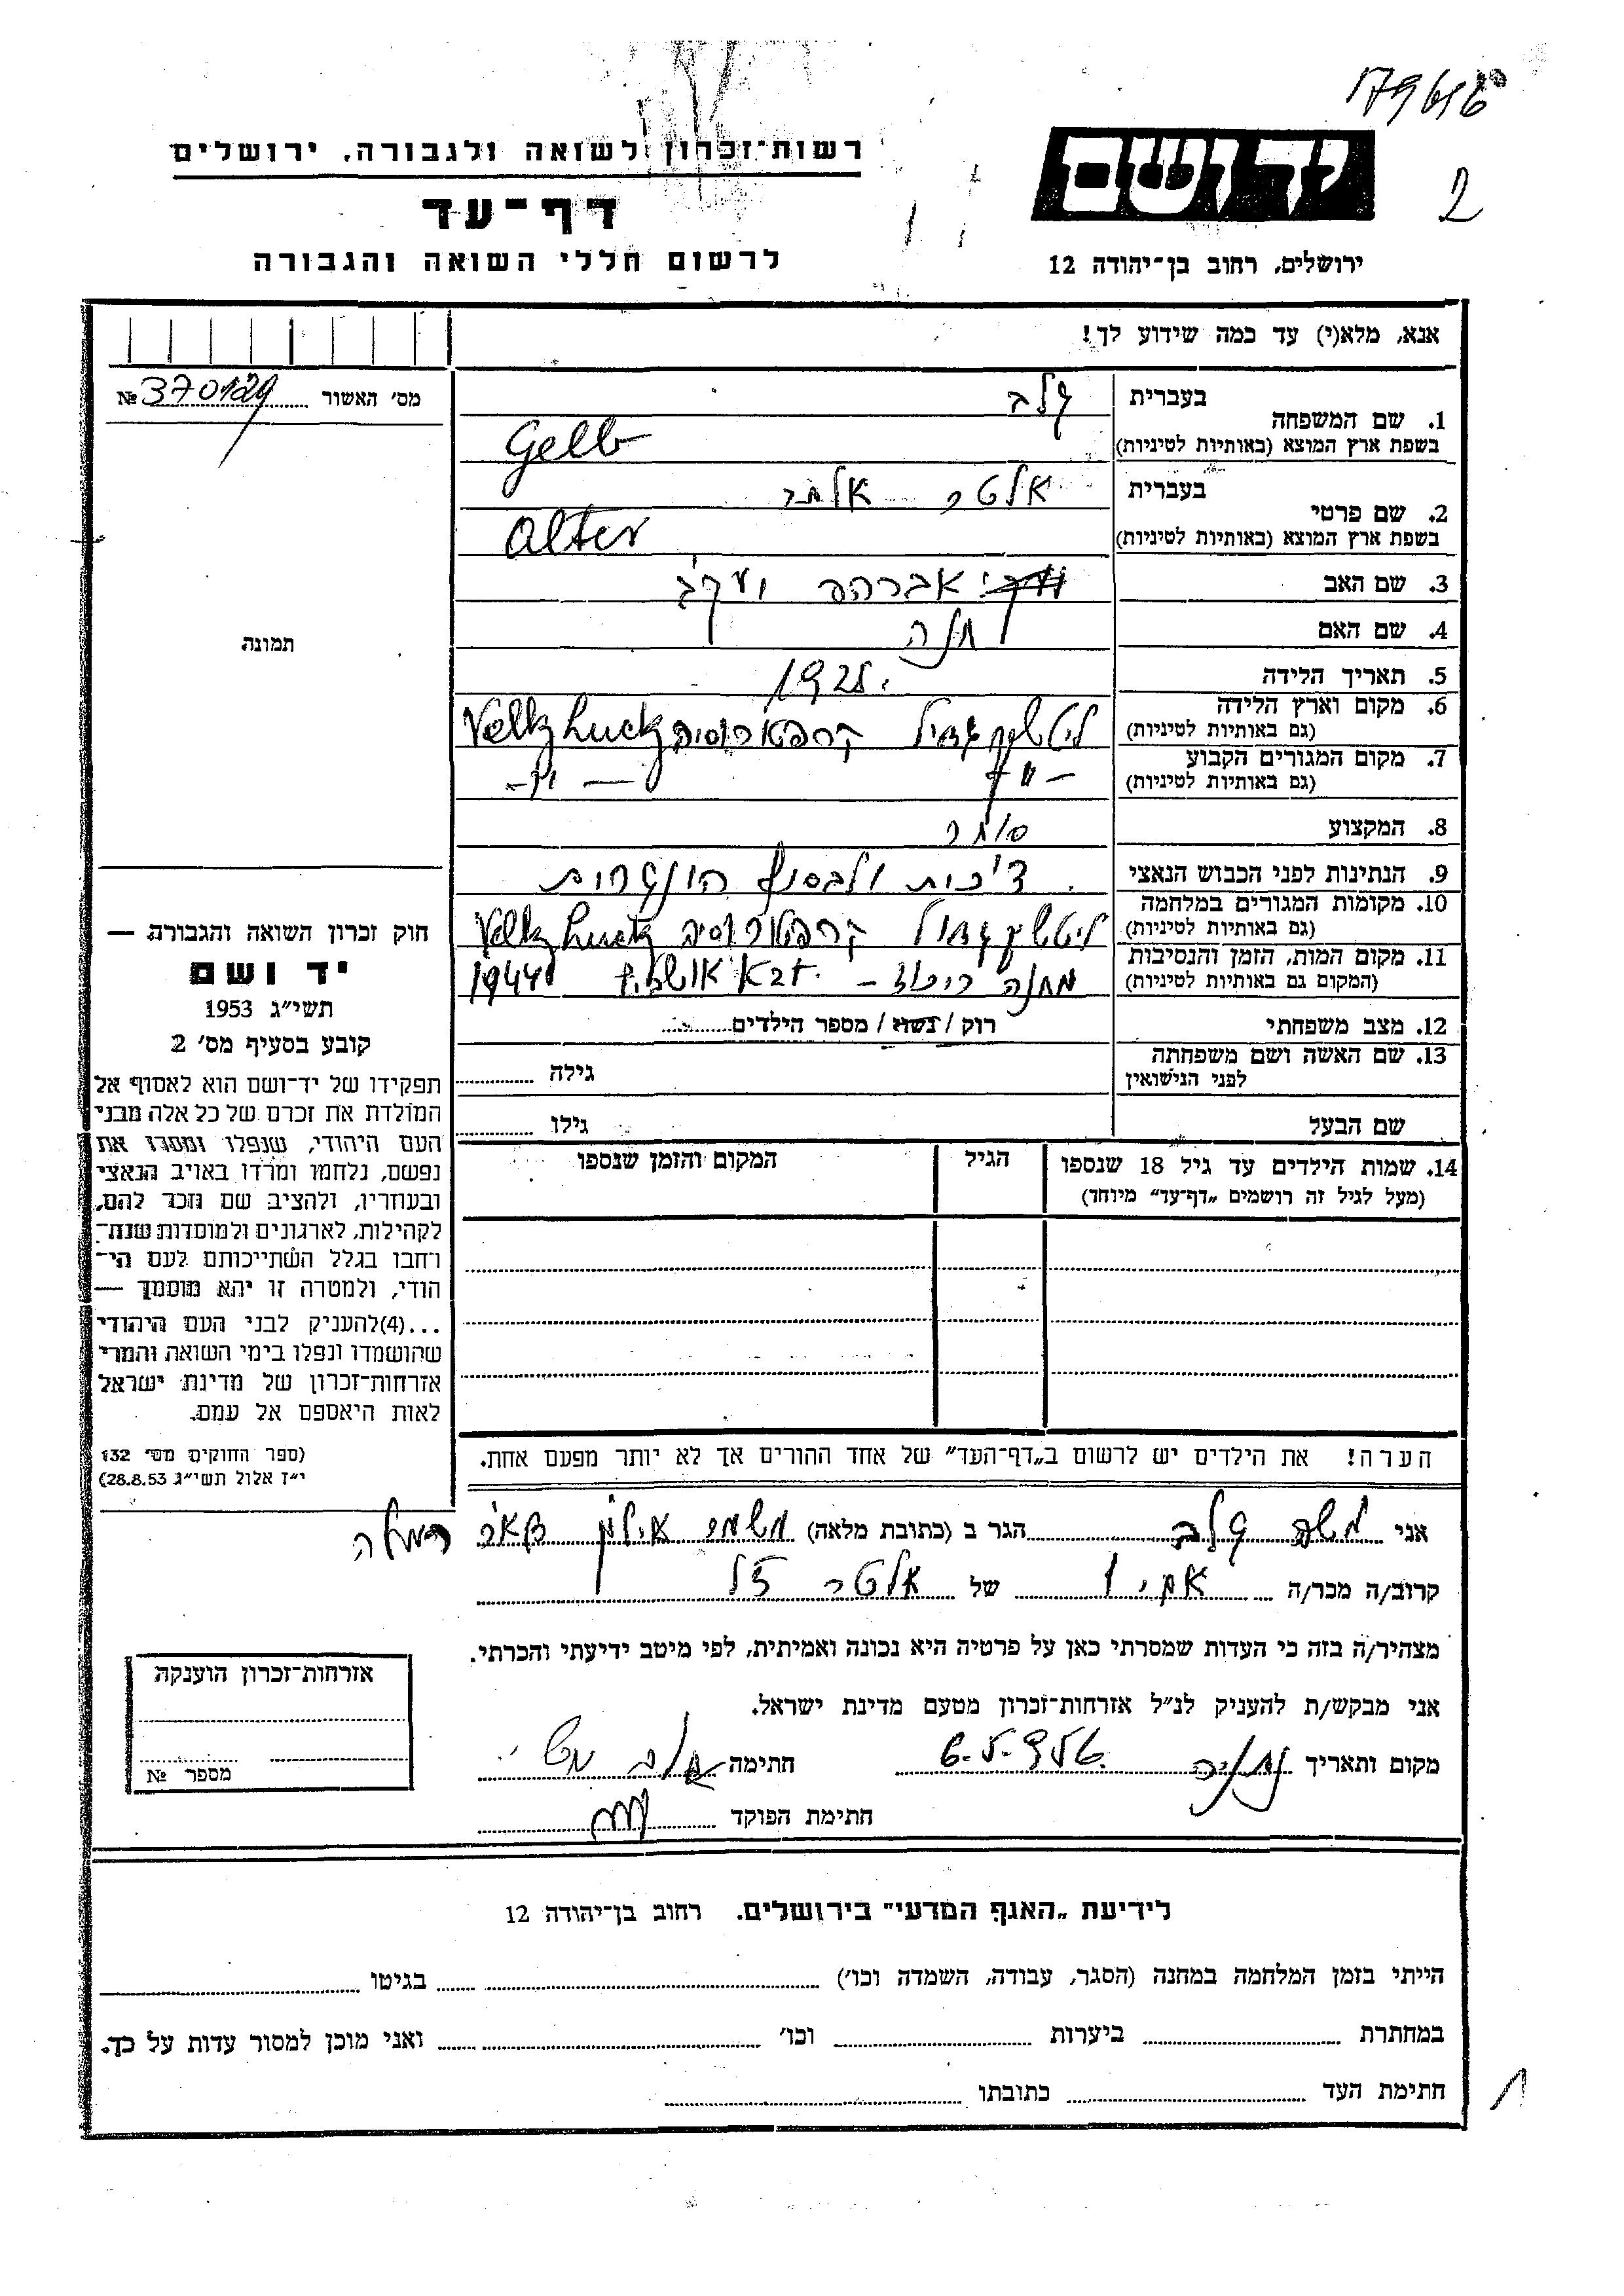 2
יד ושם
ירושלים, רחוב בן־יהודה 12
רשות־זכרון לשואה ולגבורה, ירושלים
דף־עד
לרשום חללי השואה והגבורה
אנא, מלא(י) עד כמה שידוע לך!
מס' האשור № 370129
1. שם המשפחה
בעברית גלב
בשפת ארץ המוצא (באותיות לטיניות) Gelb
2. שם פרטי
בעברית אלטר
בשפת ארץ המוצא (באותיות לטיניות) Alter
3. שם האב אברהם יעקב
4. שם האם חנה
5. תאריך הלידה
6. מקום וארץ הלידה
(גם באותיות לטיניות)
7. מקום המגורים הקבוע
(גם באותיות לטיניות)
8. המקצוע סוחר
9. הנתינות לפני הכבוש הנאצי צ'כית ולבסוף הונגרית
10. מקומות המגורים במלחמה
(גם באותיות לטיניות)
11. מקום המות, הזמן והנסיבות מחנה ריכוז 1944
(המקום גם באותיות לטיניות)
12. מצב משפחתי רוק / נשוי / מספר הילדים
13. שם האשה ושם משפחתה
לפני הנישואין גילה
שם הבעל גילו
14. שמות הילדים עד גיל 18 שנספו
(מעל לגיל זה רושמים „דף־עד” מיוחד)
הגיל
המקום והזמן שנספו
הערה! את הילדים יש לרשום ב„דף־העד” של אחד ההורים אך לא יותר מפעם אחת.
תמונה
חוק זכרון השואה והגבורה —
יד ושם
תשי״ג 1953
קובע בסעיף מס' 2
תפקידו של יד־ושם הוא לאסוף אל
המולדת את זכרם של כל אלה מבני
העם היהודי, שנפלו ומסרו את
נפשם, נלחמו ומרדו באויב הנאצי
ובעוזריו, ולהציב שם וזכר להם,
לקהילות, לארגונים ולמוסדות שנח־
רחבו בגלל השתייכותם לעם הי־
הודי, ולמטרה זו יהא מוסמך —
...(4)להעניק לבני העם היהודי
שהושמדו ונפלו בימי השואה והמרי
אזרחות־זכרון של מדינת ישראל
לאות היאספם אל עמם.
(ספר החוקים מס' 132
י״ז אלול תשי״ג 28.8.53)
אני משה גלב הגר ב (כתובת מלאה) רמלה
קרוב/ה מכר/ה אחיו של אלטר ז״ל
מצהיר/ה בזה כי העדות שמסרתי כאן על פרטיה היא נכונה ואמיתית, לפי מיטב ידיעתי והכרתי.
אני מבקש/ת להעניק לנ״ל אזרחות־זכרון מטעם מדינת ישראל.
מקום ותאריך נתניה חתימה גלב משה
חתימת הפוקד
אזרחות־זכרון הוענקה
מספר №
לידיעת „האגף המדעי” בירושלים. רחוב בן־יהודה 12
הייתי בזמן המלחמה במחנה (הסגר, עבודה, השמדה וכו') בגיטו
במחתרת ביערות וכו' ואני מוכן למסור עדות על כך.
חתימת העד כתובתו